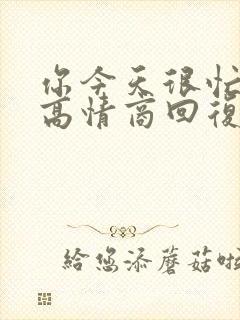 你今天很忙
高情商回復
給您添蘑菇啦